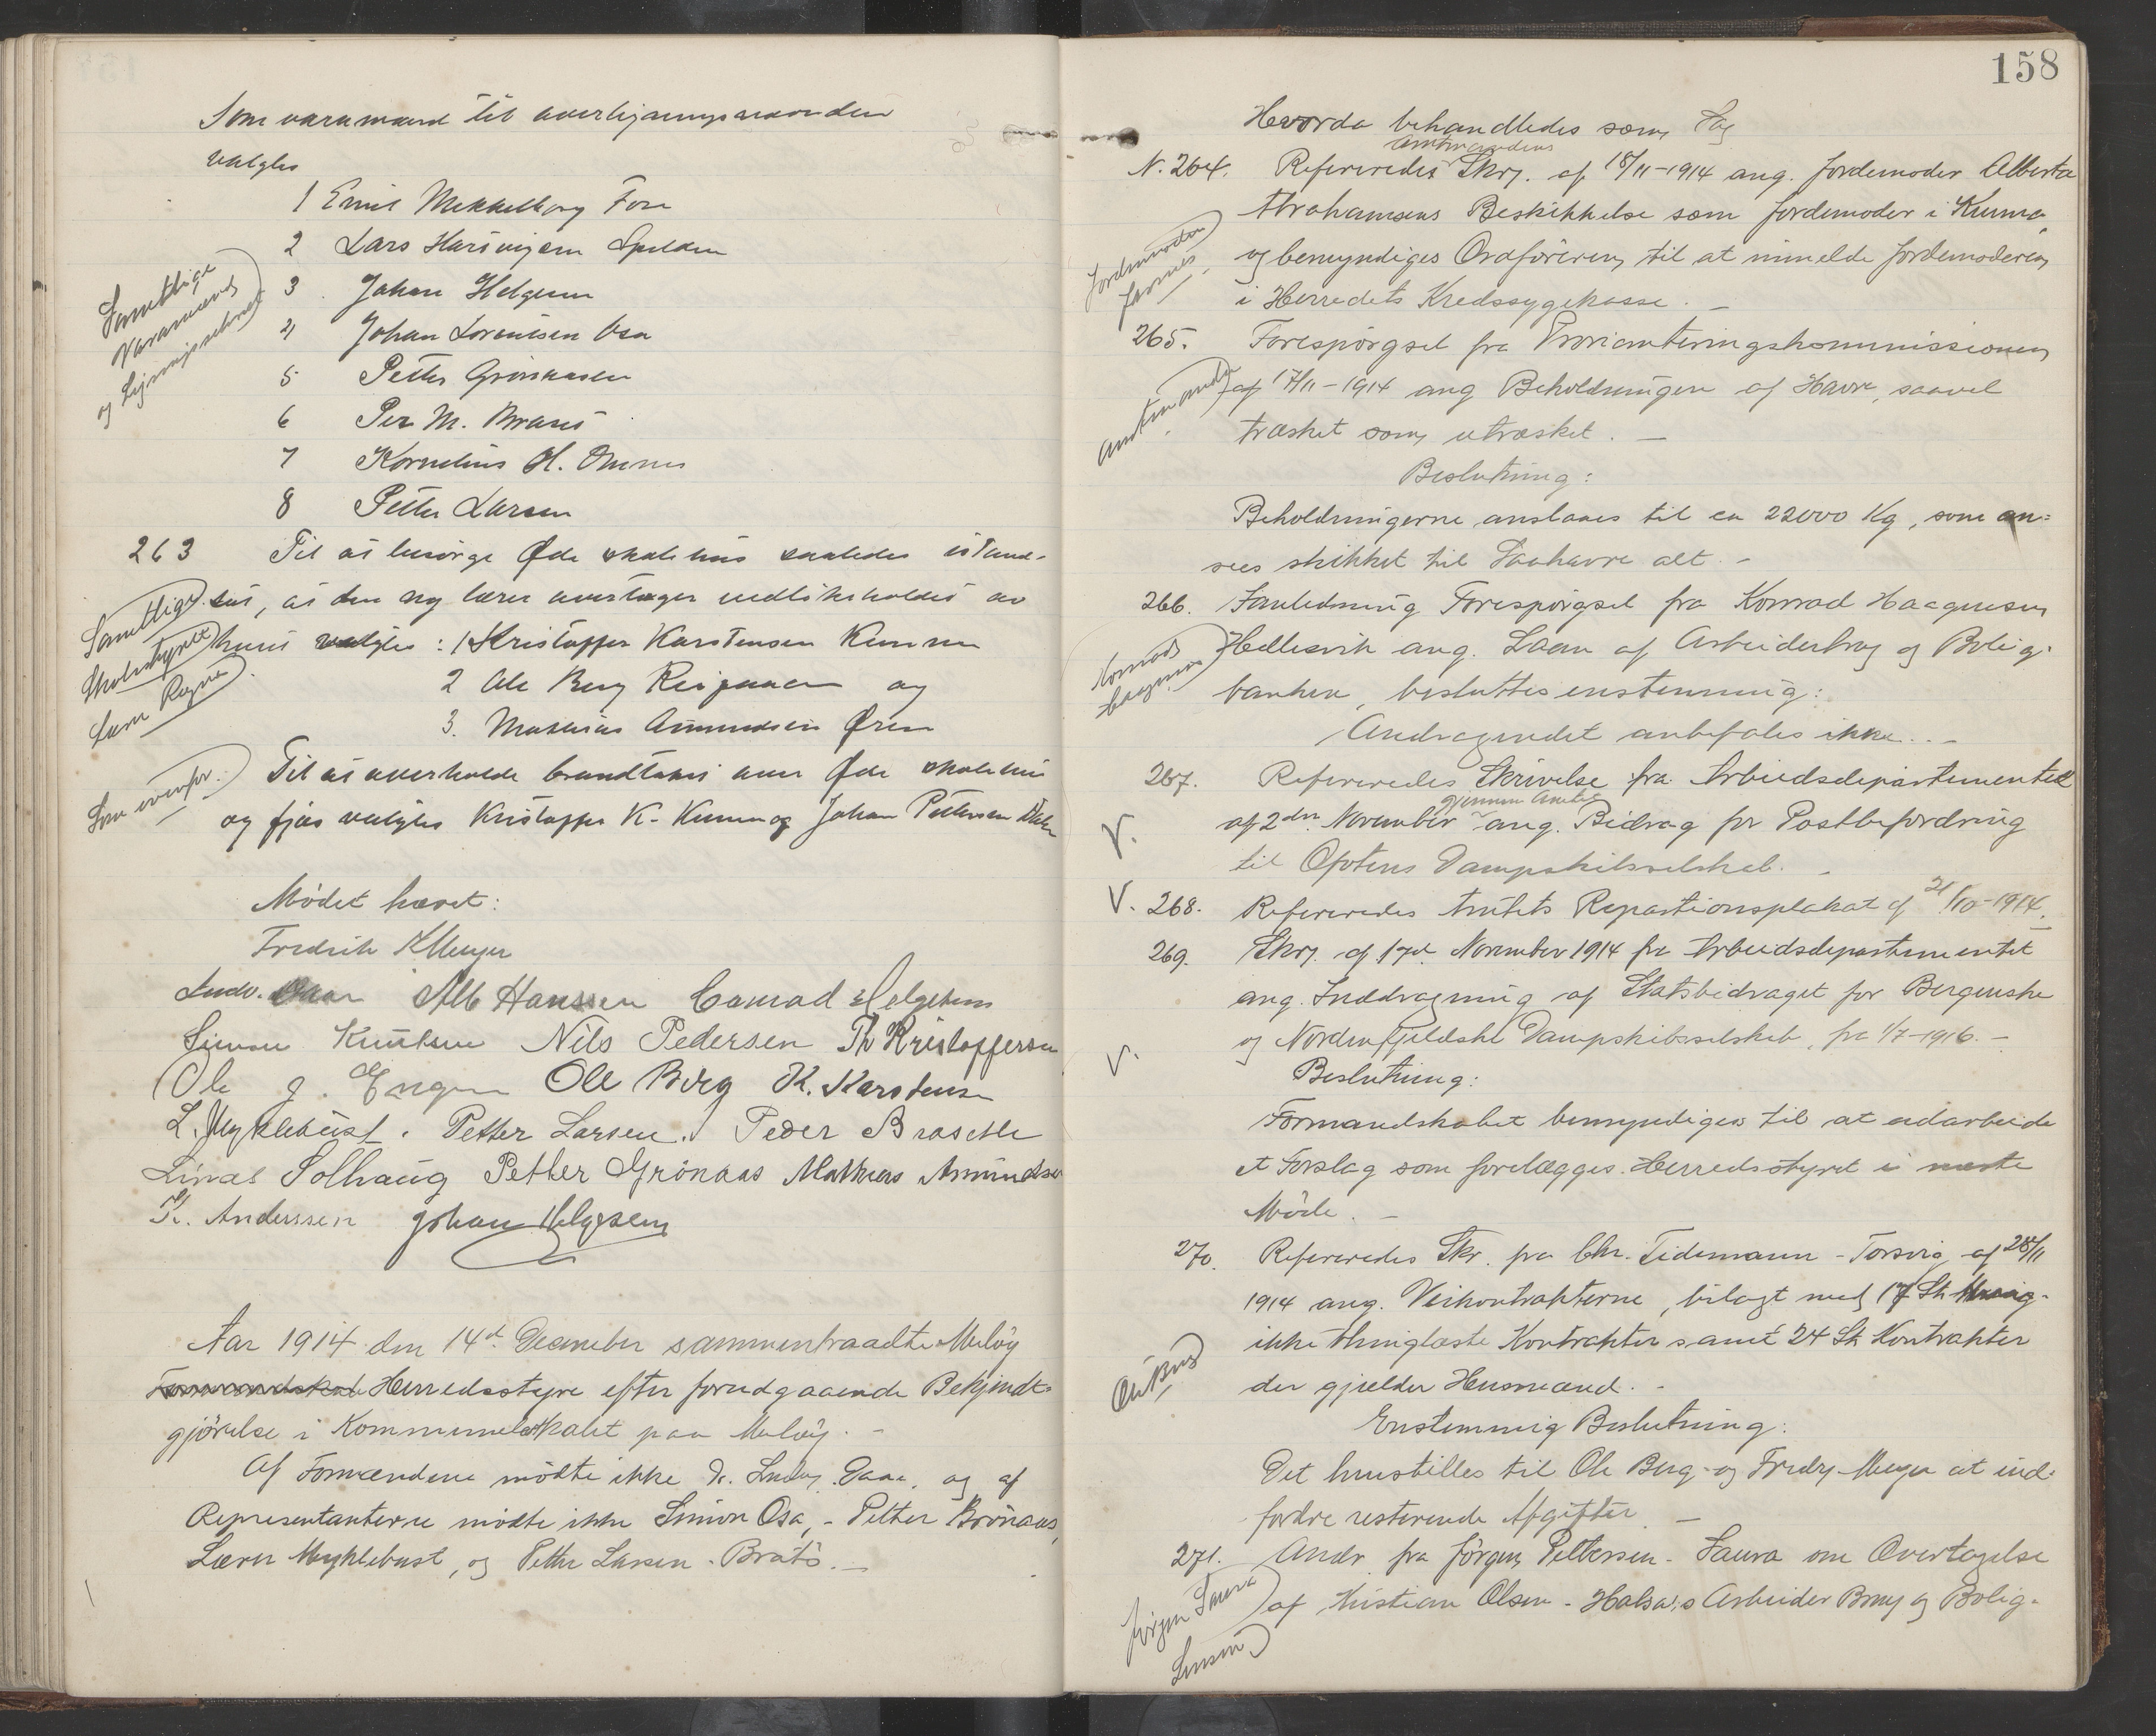 Som varamænd til overligningsnævnden
valgtes
1 Emil Mekkelborg Fore
2 Lars Hartvigsen Spilden
3 Johan Helgesen
4 Johan Lorentsen Osa
5 Petter Grönaasen
6 Per M. Braset
7 Kornelius H. Ornes
8 Petter Larsen
Samtlige
Varamænd
og Ligningsnævnd
263 Til at besörge Øde skolehus saaledes istand-
sat, at den ny lærer overtager vedlikeholdet av
huset valgtes : 1 Kristoffer Karstensen Kunna
2 Ole Berg Reipaa og
3. Mathias Amundsen Ören
Samtlige
Skolestyret
Lærer
Til at overholde brandtakst over Øde skolehus
og fjös valgtes Kristoffer K. Kunna og Johan Pettersen
Som ovenfor.
Mödet hævet:
Fredrik K Meyer
Ludv. Daae Alb Hanssen Conrad Helgesen
Simon Knutsen Nils Pedersen Th Kristoffersen
Ole J. Engen Ole Berg K. Karstensen
L. Myklebust. Petter Larsen. Peder Brasetle
Linas Solhaug Petter Grönaas Mathias Amundsen
Kr. Anderssen Johan Helgesen
Aar 1914 den 14d December sammentraadte Melöy
Formandskab Herredsstyre efter forudgaaende Bekjendt-
gjörelse i Kommunelokalet paa Melöy. -
Af Formændene mödte ikke Dr. Ludv. Daae, og af
Representanterne mödte ikke Simon Osa, - Petter Grönaas,
Lærer Myklebust, og Petter Larsen - Bratö. -
158
Hvorda behandledes som Sag
N. 264. Refereredes Amtmandens Skr. af 18/11-1914 ang. Jordemoder Alberta
Abrahamsens Beskikkelse som Jordemoder i Kunna,
og bemyndiges Ordföreren til at inmelde Jordemoderen
i Herredets Kredssygekasse. -
Jordmoderen
265. Forespörgsel fra Provianteringskommissionen
af 17/11-1914 ang Beholdningen af Havre, saavel
træsket som utræsket. -
Amtmanden
Beslutning:
Beholdningerne anslaaes til ca 22000 Kg, som an=
sees skikket til Saahavre alt. -
266. I anledning Forespörgsel fra Konrad Haagensen
Hellesvik ang. Laan af Arbeiderbrug og Bolig-
banken, besluttes enstemmig:
Andragendet anbefales ikke. -
Konrad
Haagensen
267. Refereredes Skrivelse fra Arbeidsdepartementet
af 2den November gjennem Amtet ang. Bidrag for Postbefordring
til Ofotens Dampskibsselskab.
V.
V. 268. Refereredes Amtets Repartionsplakat af 21/10-1914.
269. Skr. af 17d November 1914 fra Arbeidsdepartementet
ang. Inddragning af Statsbidraget for Bergenske
og Nordenfjeldske Dampskibsselskab, fra 1/7-1916. -
V.
Beslutning:
Formandskabet bemyndiges til at udarbeide
et Forslag som forelægges Herredsstyret i næste
Möde. -
270. Refereredes Skr. fra Chr. Tidemann - Torsvig af 28/11
1914 ang. Veikontrakterne, bilagt med 17 Stk
ikke thinglæste Kontrakter samt 24 Stk Kontrakter
der gjælder Husmænd. -
Ole Berg
Enstemmig Beslutning:
Det henstilles til Ole Berg og Fredr. Meyer at ind-
fordre resterende Afgifter. -
271. Andr. fra Jörgen Pettersen - Saura om Overtagelse
af Kristian Olsen - Halsa's Arbeider Brug og Bolig-
Jörgen Saura